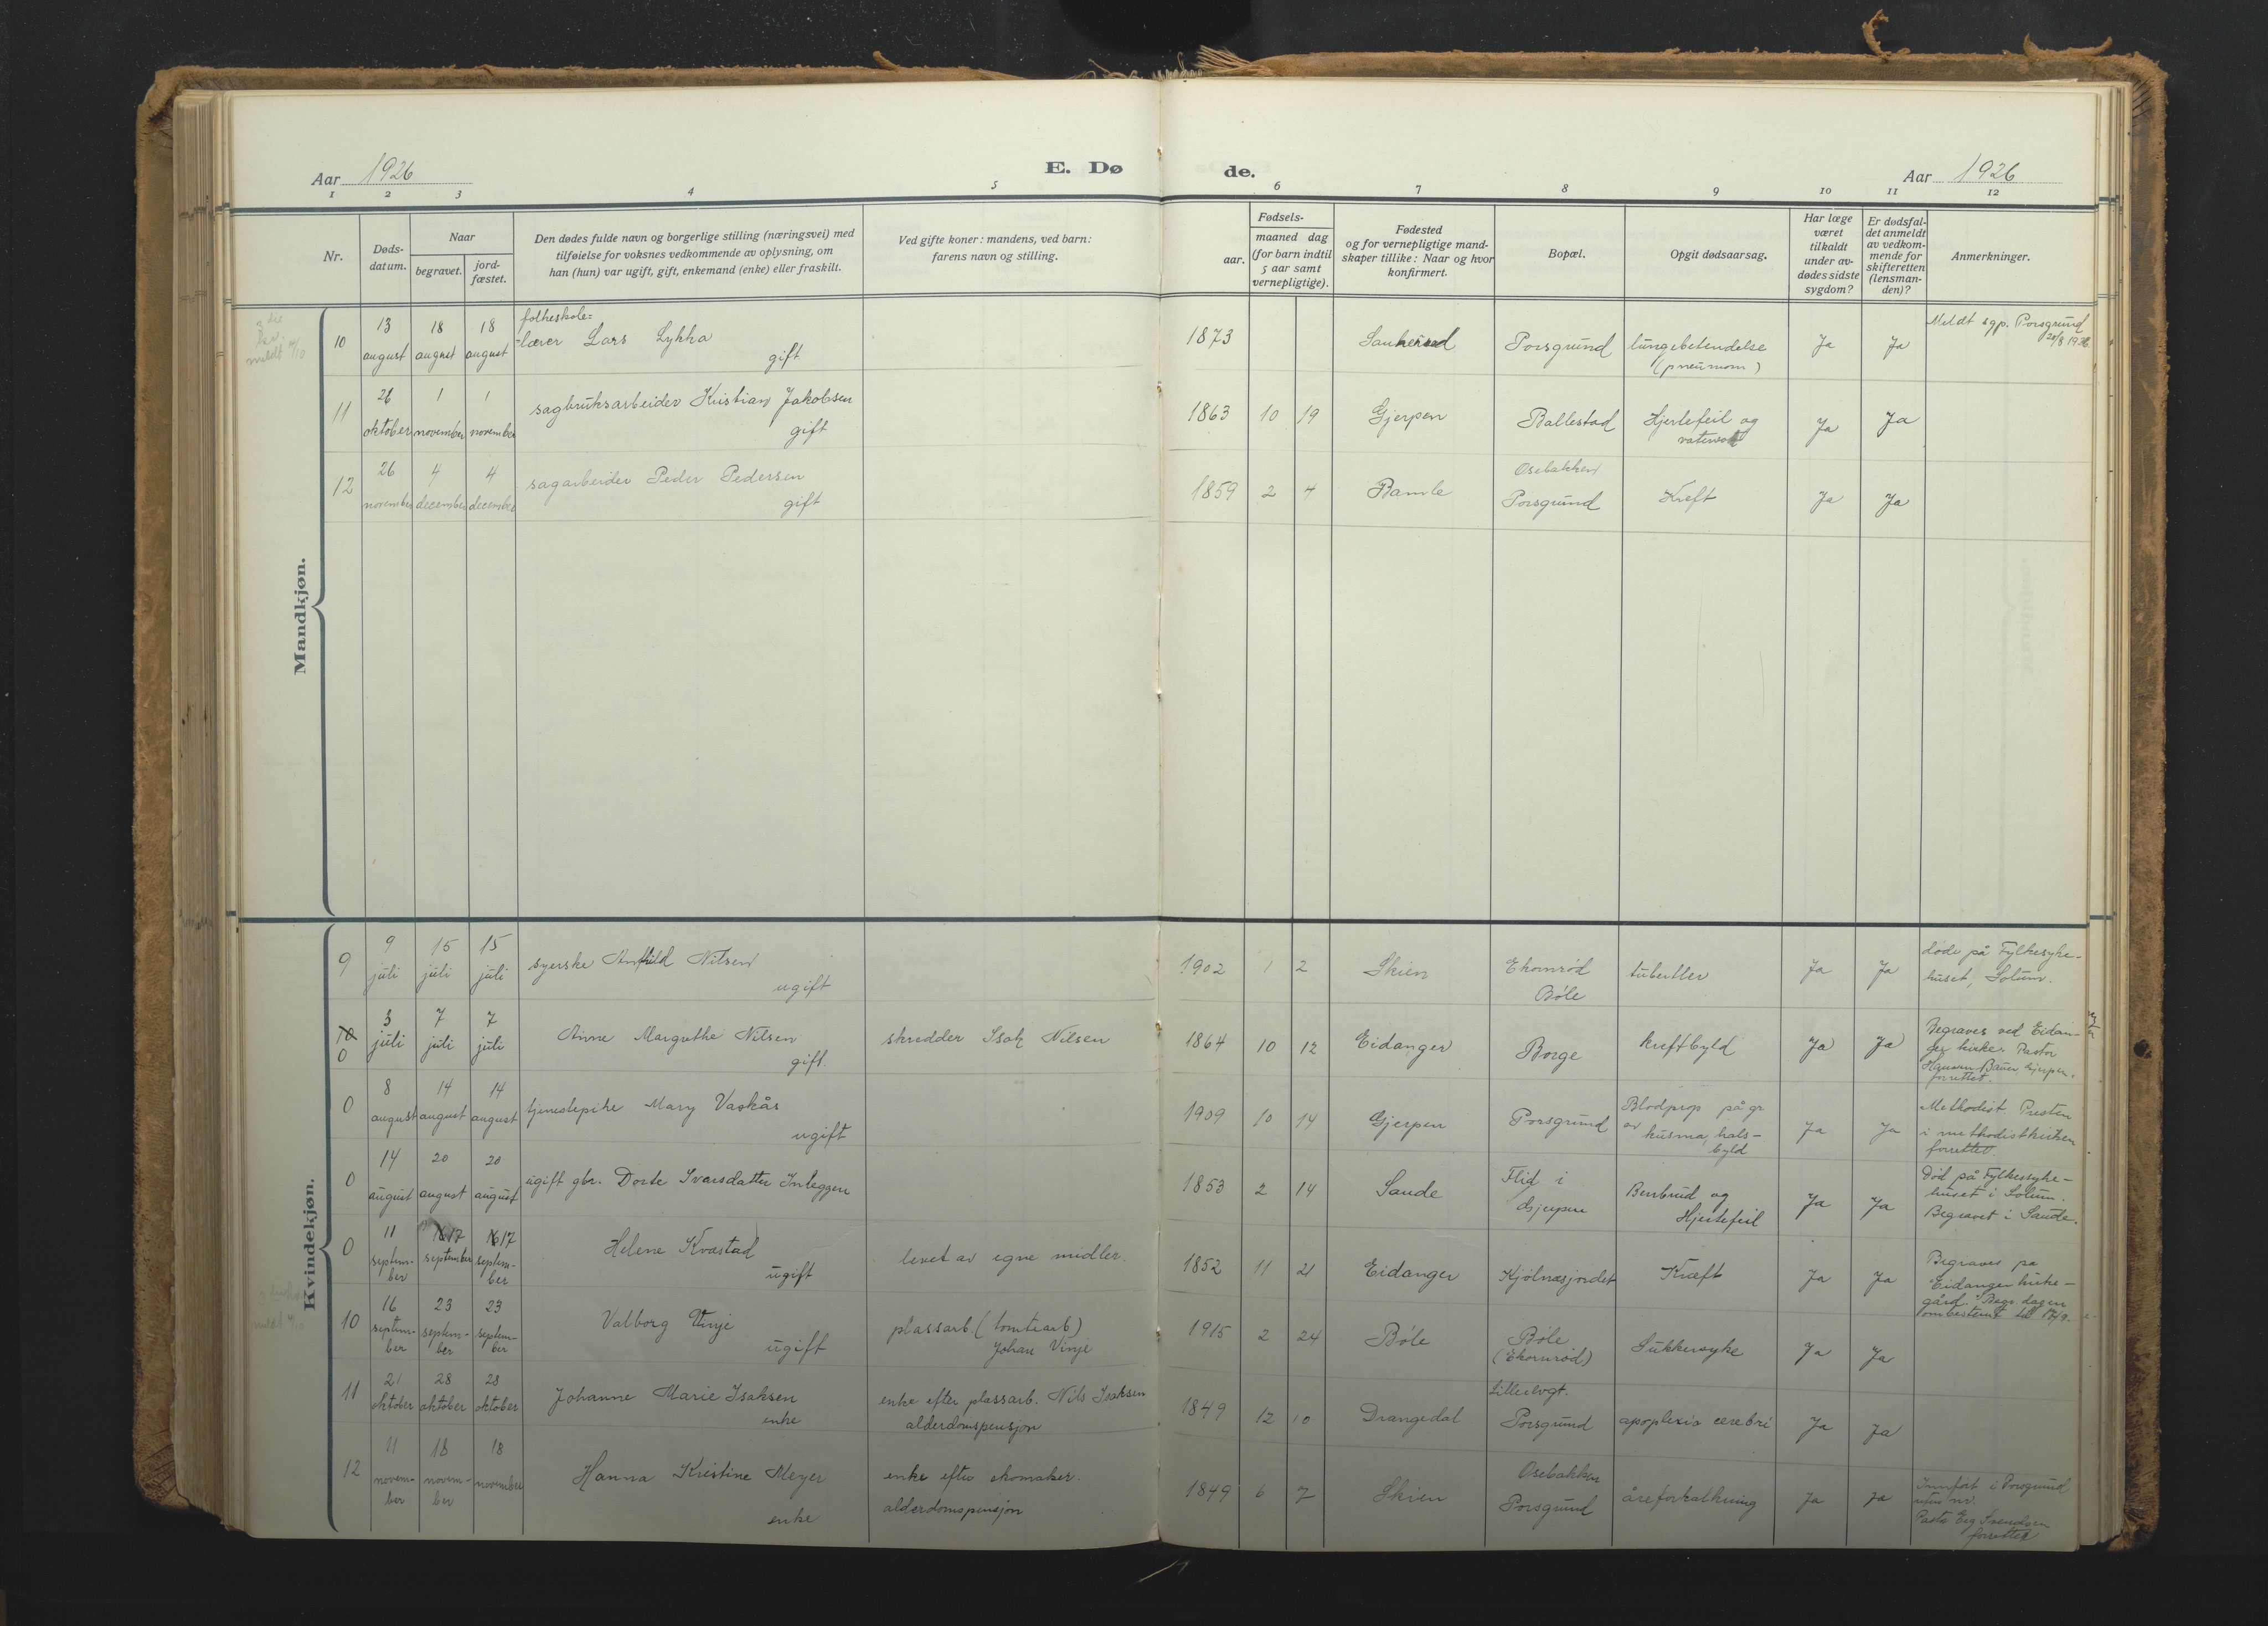 Aar 1926
E. Dø
de.
Aar 1926
1 2 3 4 5 6 7 8 9 10 11 12
Nr.
Døds-
datum.
Naar
begravet.
jord-
fæstet.
Den dødes fulde navn og borgerlige stilling (næringsvei) med
tilføielse for voksnes vedkommende av oplysning, om
han (hun) var ugift, gift, enkemand (enke) eller fraskilt.
Ved gifte koner: mandens, ved barn:
farens navn og stilling.
Fødsels-
aar.
maaned dag
(for barn indtil
5 aar samt
vernepligtige).
Fødested
og for vernepligtige mand-
skaper tillike: Naar og hvor
konfirmert.
Bopæl.
Opgit dødsaarsag.
Har læge
været
tilkaldt
under av-
dødes sidste
sygdom?
Er dødsfal-
det anmeldt
av vedkom-
mende for
skifteretten
(lensman-
den)?
Anmerkninger.
Mandkjøn.
10
13
august
18
august
18
august
folkeskole=
=lærer Lars Lykka
gift
1873
Sauherad
Porsgrund
lungebetendelse
(pneumom)
Ja
Ja
Meldt sgp. Porsgrund
20/8 1926
11
26
oktober
1
november
1
november
sagbruksarbeider Kristian Jakobsen
gift
1863
10
19
Gjerpen
Ballestad
Hjertefeil og
Ja
Ja
12
26
november
4
december
4
december
sagarbeider Peder Pedersen
gift
1859
2
4
Bamle
Osebakken
Porsgrund
Kreft
Ja
Ja
Kvindekjøn.
9
9
juli
15
juli
15
juli
syerske Arnhild Nilsen
ugift
1902
1
2
Skien
Ekornrød
Bøle
tuberkler
Ja
Ja
døde på Fylkesyke-
huset, Solum.
10
0
3
juli
7
juli
7
juli
Anne Margrethe Nilsen
gift.
skredder Isak Nilsen
1864
10
12
Eidanger
Borge
kreftbyld
Ja
Ja
Begraves ved Eidan-
ger kirke. Pastor
Hansen Bauer, Gjerpen.
forrettet.
0
8
august
14
august
14
august
tjenestepike Mary Vaskås
ugift
1909
10
14
Gjerpen
Porsgrund
Blodprop på gr.
av kusma, hals-
byld
Ja
Ja
Methodist Presten
i methodistkirken
forrettet.
0
14
august
20
august
20
august
ugift gbr. Dorte Ivarsdatter Inleggen
1853
2
14
Saude
Flid i
Gjerpen
Benbrud og
Hjertefeil
Ja
Ja
Død på Fylkessyke-
huset i Solum.
Begravet i Saude.
0
11
septem-
ber
16 17
september
16 17
septem-
ber
Helene Kvæstad
ugift
levet av egne midler.
1852
11
21
Eidanger
Kjølnæsjordet
Kræft
Ja
Ja
Begraves på
Eidanger kirke-
gård. Begr. dagen
ombestemt til 17/9.
10
16
septem-
ber
23
septem-
ber
23
septem-
ber
Valborg Vinje
ugift
plassarb (tomtearb)
Johan Vinje
1915
2
24
Bøle
Bøle
(Ekornrød)
Sukkersyke
Ja
Ja
11
21
oktober
28
oktober
28
oktober
Johanne Marie Isaksen
enke
enke efter plassarb. Nils Isaksen
alderdomspensjon
1849
12
10
Drangedal
Lilleelvgt.
Porsgrund
apoplexia cerebri
Ja
Ja
12
11
novem-
ber
18
novem-
ber
18
november
Hanna Kristine Meyer
enke
enke efter skomaker.
alderdomspensjon
1849
6
7
Skien
Osebakken
Porsgrund
åreforkalkning
Ja
Ja
Innført i Porsgrund
uten nr.
Pastor Erg Svendsen
forrettet